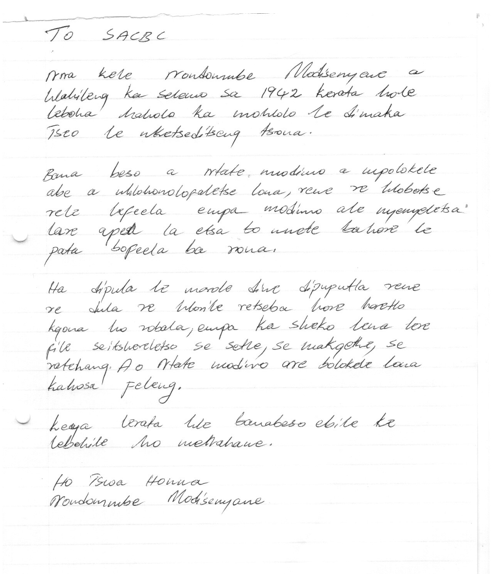 To SACBC
Nna kele Nondonmbe Modisenyane a
hlahileng ka selemo sa 1942 kerata ho le
leboha haholo ka mohlolo le dimaka
Tseo le nketseditseng tsona.
Bana beso a Ntate modimo a mpolokele
abe a nhlohonolopaletse lona, rene re hlobotse
rele bofeela empa modimo ale nyenyeletsa
lare apea la etsa bo nnete bahore le
pata bofeela ba rona.
Ha dipula le merole dine dipuputla rene
re dula re hlonile retseba hore haretlo
kgona ho robala, empa ka sheko lena lere
file seitshediso se setle, se makgethe, se
ratehang. Ao Ntate modimo are bolokele lona
kahosa Feleng.
keya lerata hle banabeso ebile ke
lebohile ho menahane.
Ho Tswa Honna
Nondonmbe Modisenyane